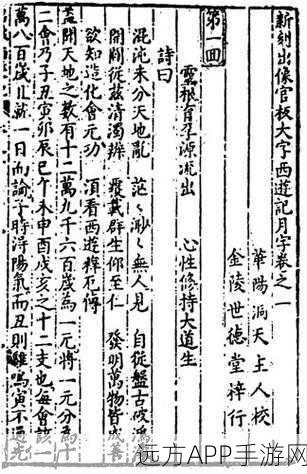 新刻出像官板大字西遊記月字卷之一
華陽洞天主人校
金陵世德堂梓行
第一回
靈根育孕源流出 心性修持大道生
詩曰
混沌未分天地亂 茫〻渺〻無人見 自從盤古破
開闢從茲清濁辨 覆載群生仰至仁 發明萬物皆成
欲知造化會元功 須看西遊釋厄傳
蓋聞天地之數有十二萬九千六百歲為一元將一元分為十
二會乃子丑寅卯辰巳午未申酉戌亥之十二支也每會該一
萬八百歲且就一日而論子時得陽氣而丑則鷄鳴寅不通光
远方APP手游网